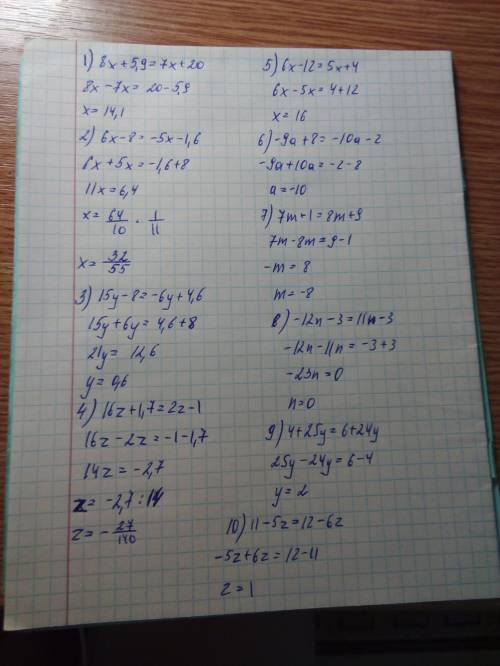 1) 8x+5,9=7x+20
8x-7x= 20-5,9
x= 14,1
2) 6x-8= -5x-1,6
6x+5x=-1,6+8
11x=6,4
x= 64/10 · 1/11
x= 32/55
3) 15y-8=-6y+4,6
15y+6y= 4,6+8
21y= 12,6
y= 0,6
4) 16z+1,7=2z-1
16z-2z=-1-1,7
14z=-2,7
z= -2,7:14
z= - 27/140
5) 6x-12=5x+4
6x-5x=4+12
x= 16
6) -9a+8=-10a-2
-9a+10a=-2-8
a=-10
7) 7m+1=8m+9
7m-8m=9-1
-m= 8
m=-8
8) -12n-3=11n-3
-12n-11n=-3+3
-23n=0
n=0
9) 4+25y=6+24y
25y-24y=6-4
y= 2
10) 11-5z=12-6z
-5z+6z=12-11
z=1